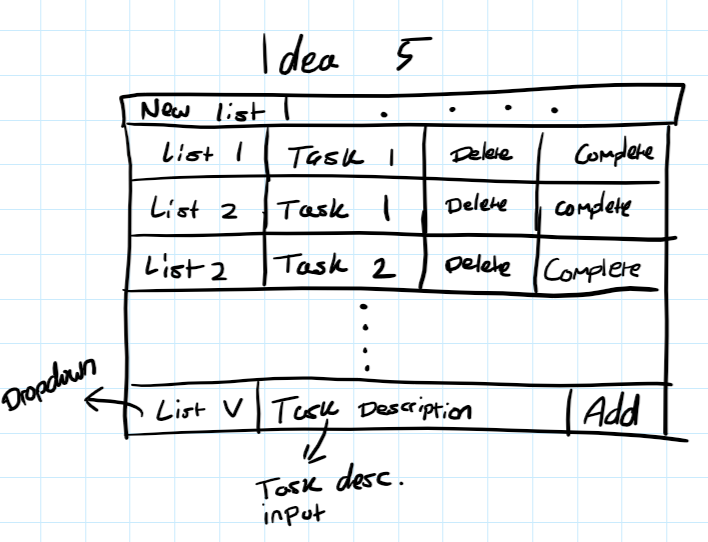 Idea 5
New list
List 1 Task 1 Delete Complete
List 2 Task 1 Delete Complete
List 2 Task 2 Delete Complete
Dropdown
List V Task Description Add
Task desc.
input